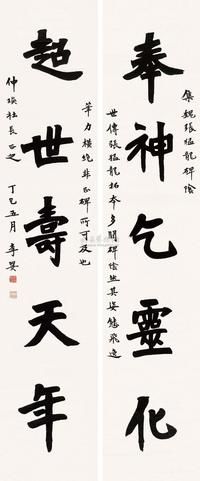 集魏張猛龍碑陰
奉神乞靈化
世傳張猛龍拓本多闕碑陰然其姿態飛逸
筆力橫絕非正碑所可及也
超世壽天年
仲瑛社長正之
丁巳五月